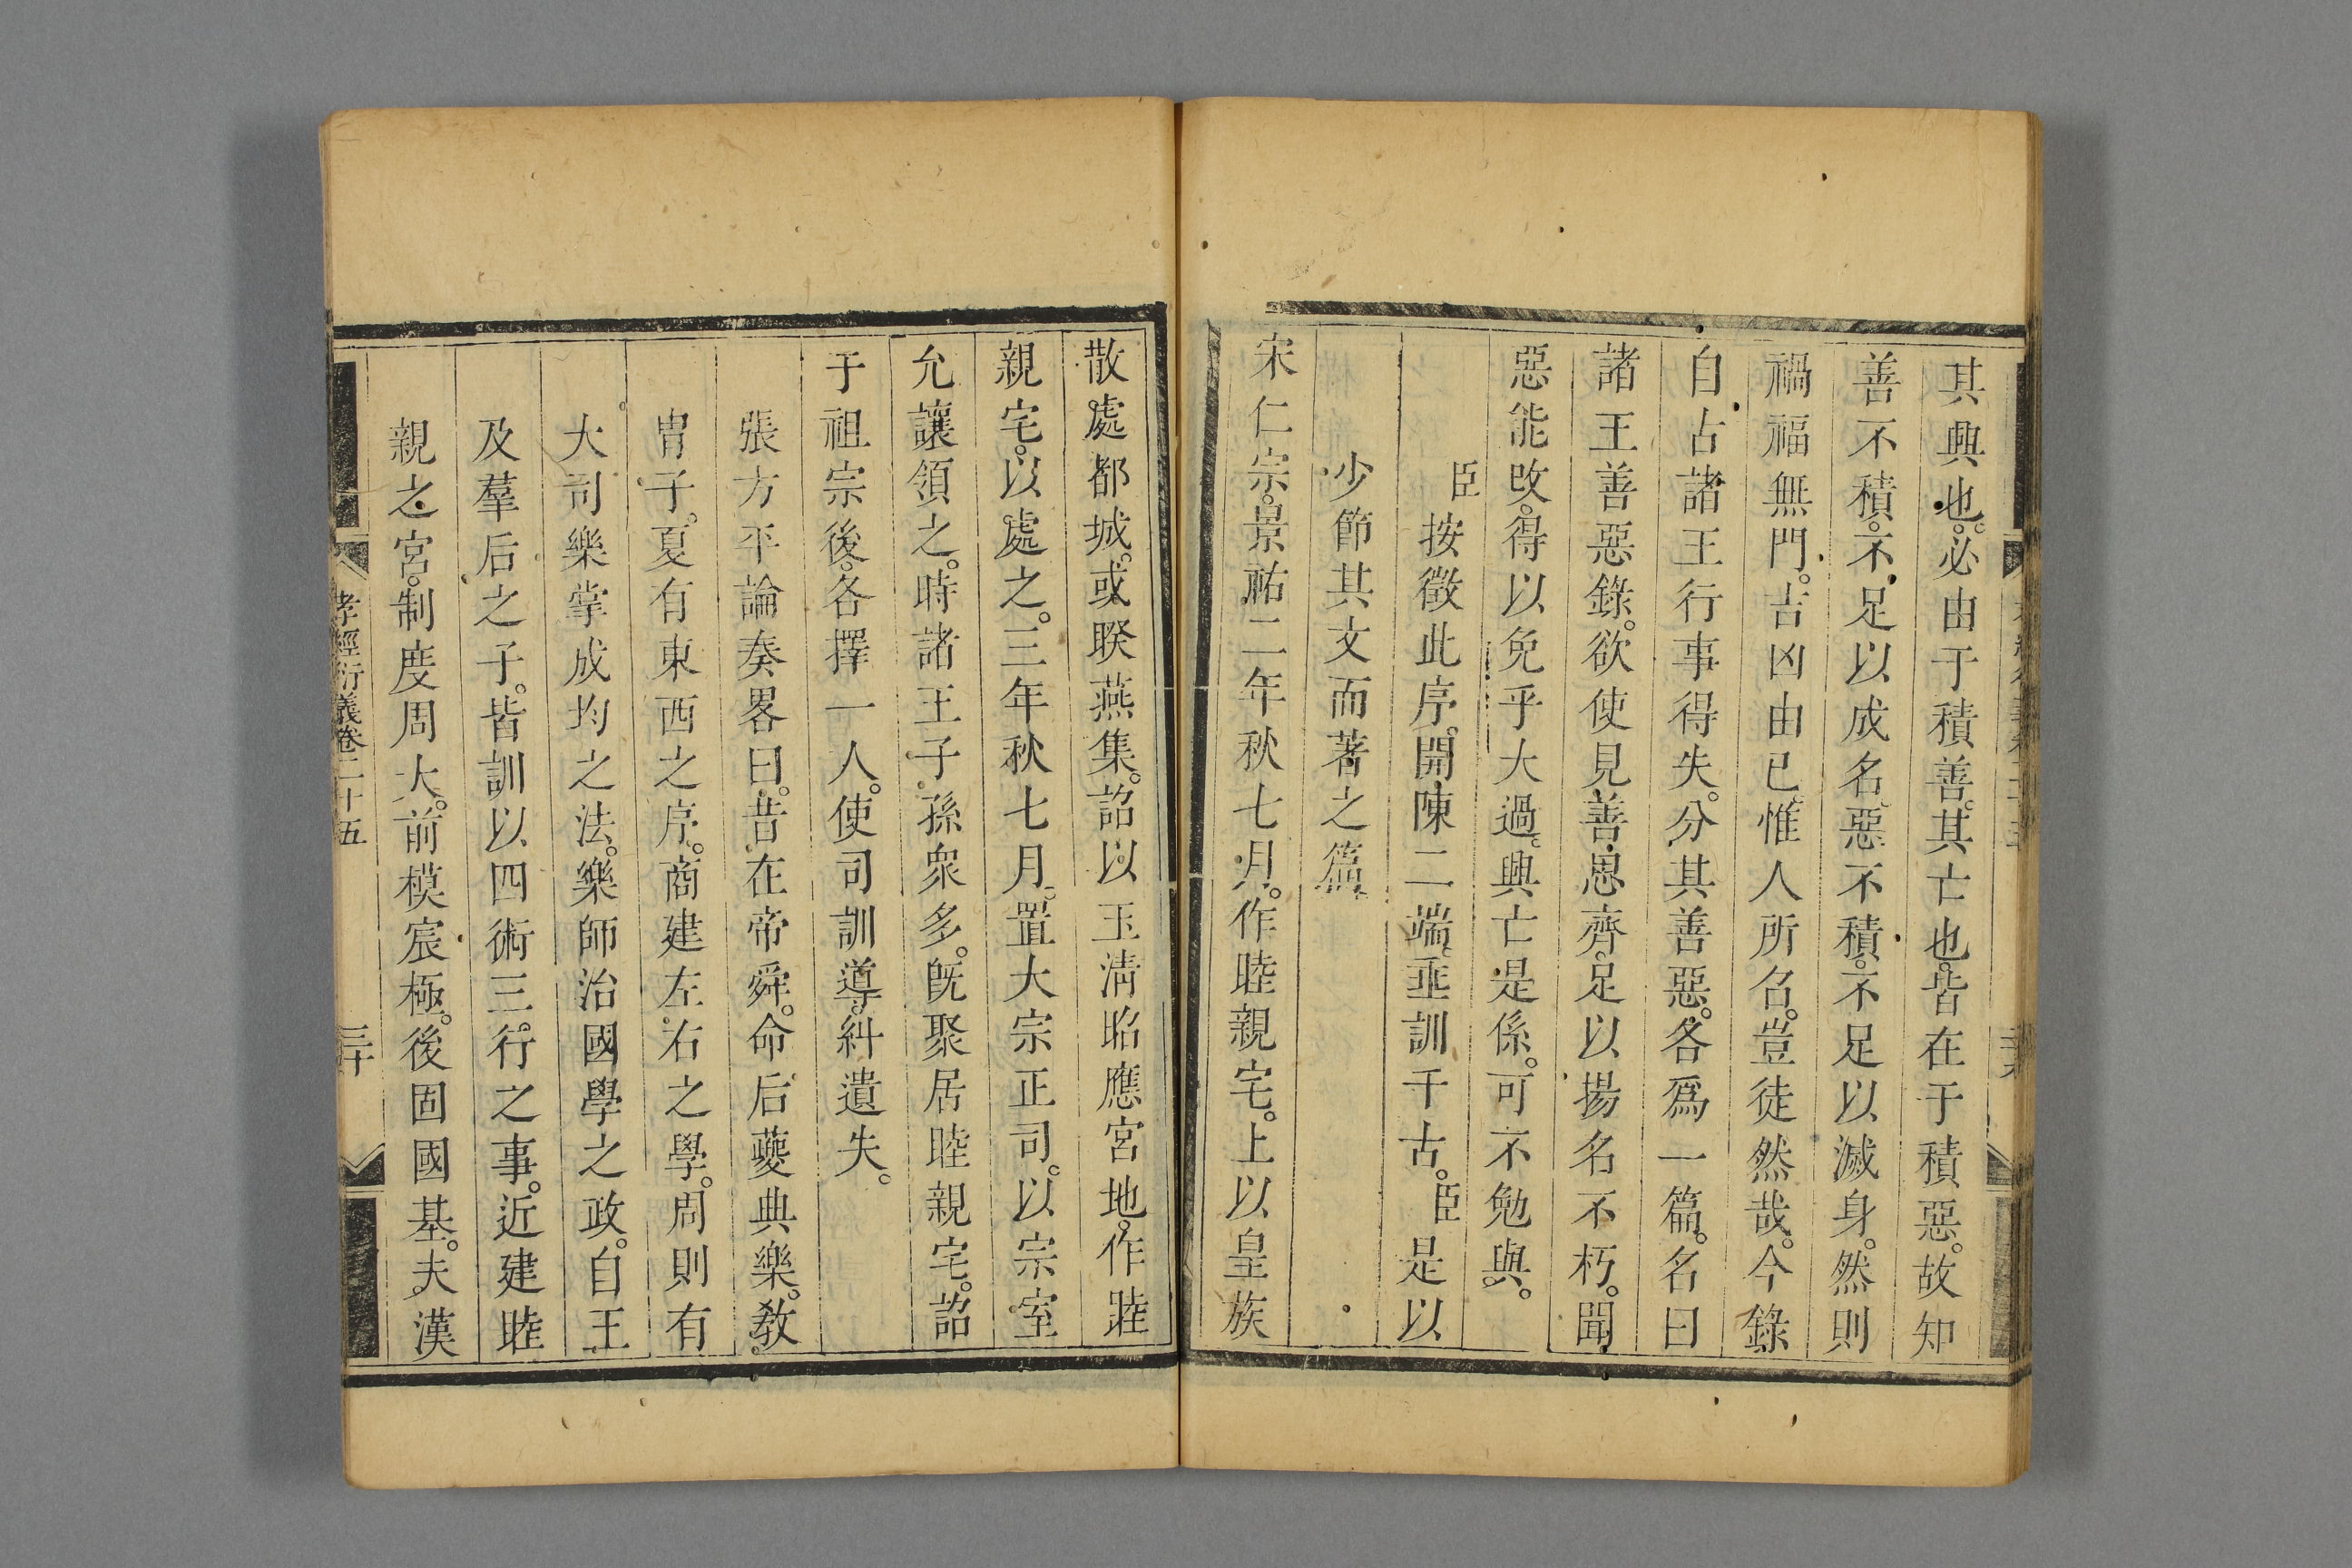 其興也。必由于積善。其亡也。皆在于積惡。故知
善不積。不足以成名。惡不積。不足以滅身。然則
禍福無門。吉凶由已。惟人所召。豈徒然哉。今錄
自古諸王行事得失。分其善惡。各爲一篇。名曰
諸王善惡錄。欲使見善思齊。足以揚名不朽。聞
惡能改。得以免乎大過。興亡是係。可不勉與。
臣按徵此序。開陳二端。垂訓千古。臣是以
少節其文而著之篇。
宋仁宗。景祐二年秋七月。作睦親宅。上以皇族
散處都城。或睽燕集。詔以玉淸昭應宮地。作睦
親宅。以處之。三年秋七月。置大宗正司。以宗室
允讓領之。時諸王子孫衆多。旣聚居睦親宅。詔
于祖宗後。各擇一人。使司訓導。糾遺失。
張方平論奏畧曰。昔在帝舜。命后夔典樂。教
胄子。夏有東西之序。商建左右之學。周則有
大司樂掌成均之法。樂師治國學之政。自王
及羣后之子。皆訓以四術三行之事。近建睦
親之宮。制度周大。前模宸極。後固國基。夫漢
孝經衍義卷二十五
三十